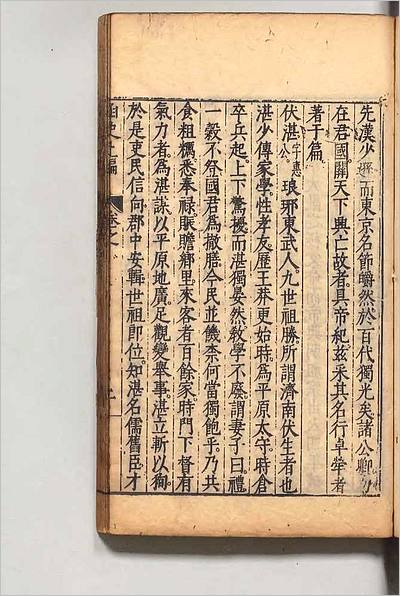 先漢少遜而東京名節皭然於百代獨光矣諸公卿
在君國關天下興亡故者具帝紀茲采其名行卓犖者
著于篇
伏湛字惠公琅邪東武人九世祖勝所謂濟南伏生者也
湛少傳家學性孝友歷王莽更始時為平原太守時倉
卒兵起上下驚擾而湛獨晏然教學不廢謂妻子曰禮
一穀不祭國君為撤膳今民並饑柰何當獨飽乎乃共
食粗糲悉奉祿賑贍鄉里來客者百餘家時門下督有
氣力者為湛謀以平原地廣足觀變舉事湛立斬以狥
於是吏民信向郡中安輯世祖即位知湛名儒舊臣才